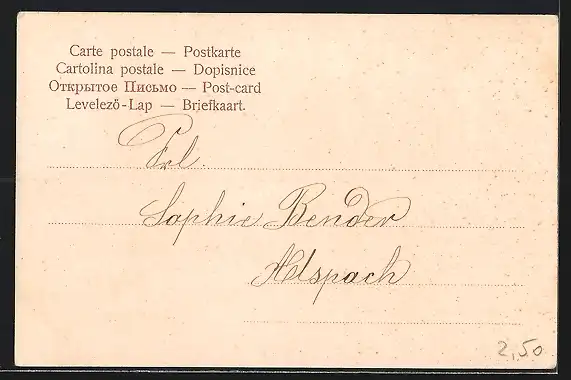 Carte postale — Postkarte
Cartolina postale — Dopisnice
Открытое Письмо — Post-card
Levelező-Lap — Briefkaart.
Frl.
Sophie Bender
Alspach
2,50